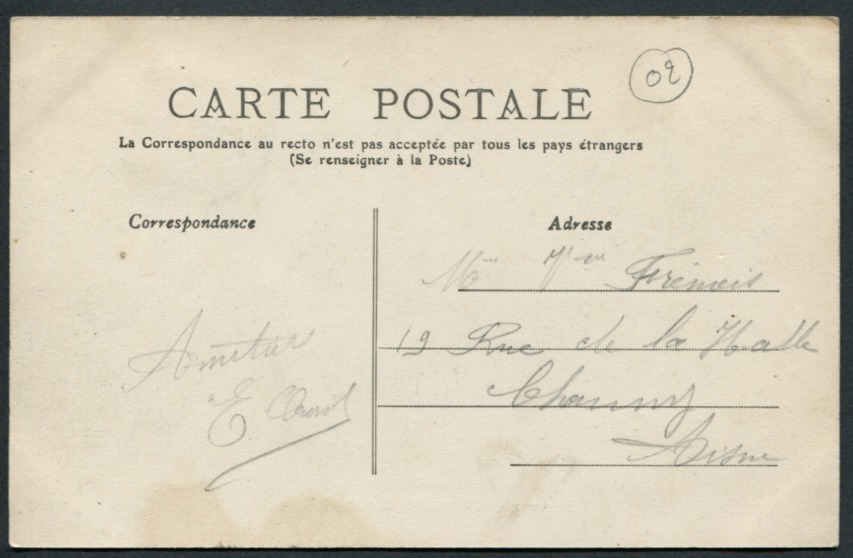 02
CARTE POSTALE
La Correspondance au recto n'est pas acceptée par tous les pays étrangers
(Se renseigner à la Poste)
Correspondance
Adresse
Mme Vve
19 Rue de la Halle
Chauny
Aisne
Amitiés
E